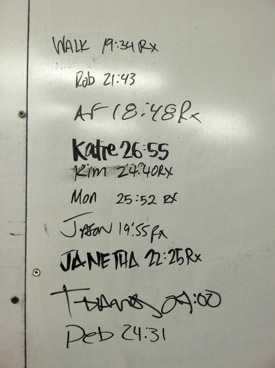 WALK 19:34 Rx
Rob 21:43
AF 18:48 Rx
Katie 26:55
Kim 24:40 RX
Mon 25:52 RX
JASON 19:55 Rx
JANETHA 22:25 Rx
:00
Deb 24:31